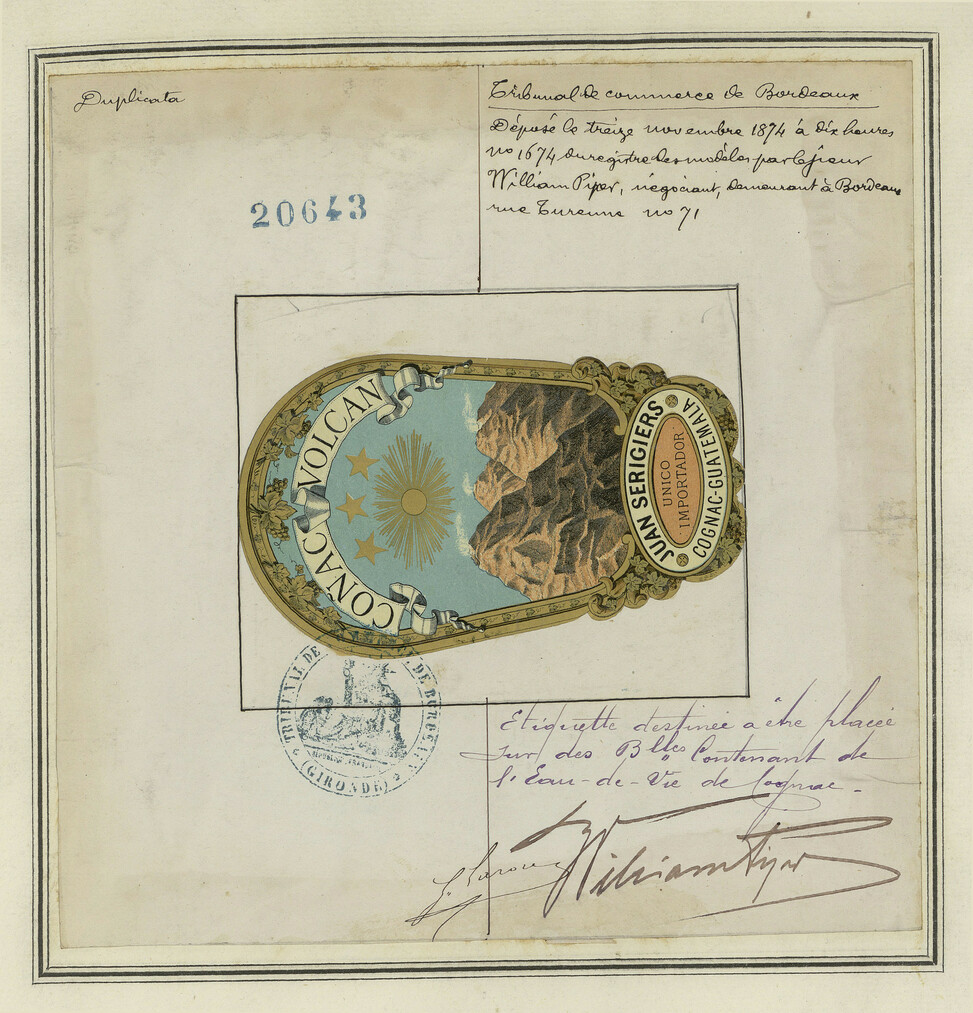 Duplicata
Tribunal de commerce de Bordeaux
Déposé le treize novembre 1874 à dix heures
no 1674 du registre des modèles par le sieur
William Piper, négociant, demeurant à Bordeaux
rue Turenne no 71
20643
COÑAC VOLCAN
JUAN SERIGIERS
UNICO
IMPORTADOR
COGNAC-GUATEMALA
TRIBUNAL DE DE BORDEAUX
(GIRONDE)
Etiquette destinée a être placée
sur des Blles Contenant de
l'Eau-de-Vie de Cognac.
William Piper